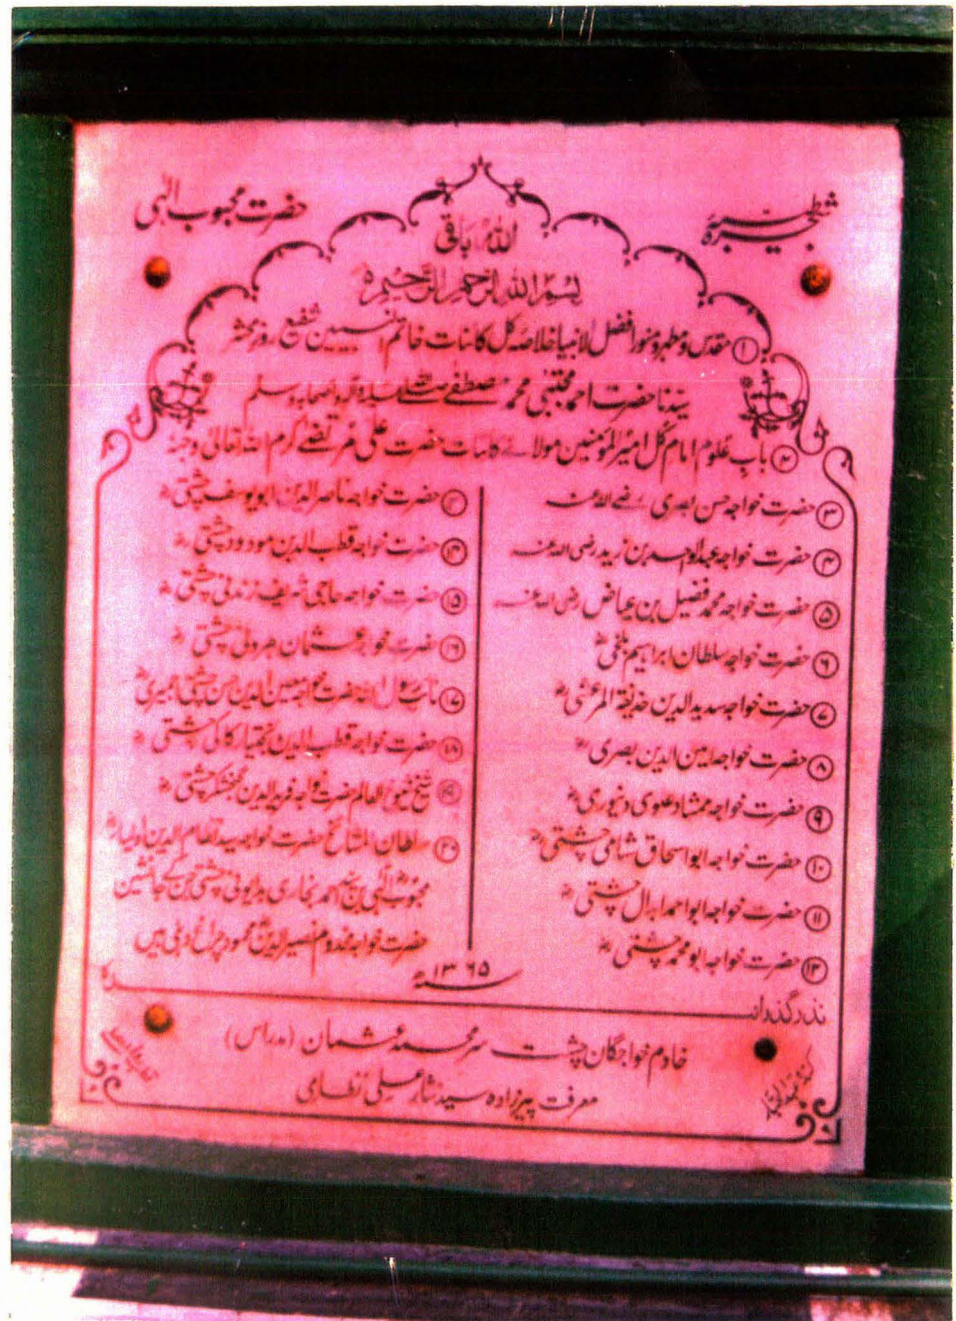 شجرہ طیبہ
حضرت محبوب الٰہی
اللہ باقی
بسم اللہ الرحمن الرحیم
۱ مقدس و مطہر و منور افضل لانبیا خلاصہ کل کائنات خاتم النبیین شفیع روز محشر
سیدنا حضرت احمد مجتبٰی محمد مصطفے صلی اللہ علیہ و آلہ و اصحابہ وسلم
۲ باب علوم امام کل امیر المومنین مولائے کائنات حضرت علی مرتضے کرم اللہ تعالیٰ وجہہ
۳ حضرت خواجہ حسن بصری رضے اللہ عنہ
۴ حضرت خواجہ عبدالواحد بن زید رضی اللہ عنہ
۵ حضرت خواجہ محمد فضیل بن عیاض رضی اللہ عنہ
۶ حضرت خواجہ سلطان ابراہیم بلخی رح
۷ حضرت خواجہ سدید الدین حذیفۃ المرعشی رح
۸ حضرت خواجہ امین الدین بصری رح
۹ حضرت خواجہ ممشاد علوی دنیوری رح
۱۰ حضرت خواجہ ابو اسحاق شامی چشتی رح
۱۱ حضرت خواجہ ابو احمد ابدال چشتی رح
۱۲ حضرت خواجہ ابو محمد چشتی رح
۱۳ حضرت خواجہ ناصر الدین ابو یوسف چشتی رح
۱۴ حضرت خواجہ قطب الدین مودود چشتی رح
۱۵ حضرت خواجہ حاجی شریف زندنی چشتی رح
۱۶ حضرت خواجہ عثمان ہرونی چشتی رح
۱۷ نائب رسول اللہ حضرت خواجہ معین الدین حسن چشتی اجمیری رح
۱۸ حضرت خواجہ قطب الدین بختیار کاکی چشتی رح
۱۹ شیخ شیوخ العالم حضرت خواجہ فرید الدین گنجشکر چشتی رح
۲۰ سلطان المشائخ حضرت خواجہ سید نظام الدین اولیاء رح
محبوب الٰہی بن سید احمد بخاری بدایونی چشتی جن کے جانشین
حضرت خواجہ مخدوم نصیر الدین محمود چراغ دہلی ہیں
سنہ ۱۳۶۵ھ
نذر گذدانہ
خادم خواجگان چشت سر محمد عثمان (مدراس)
معرفت پیرزادہ سید نثار علی نظامی